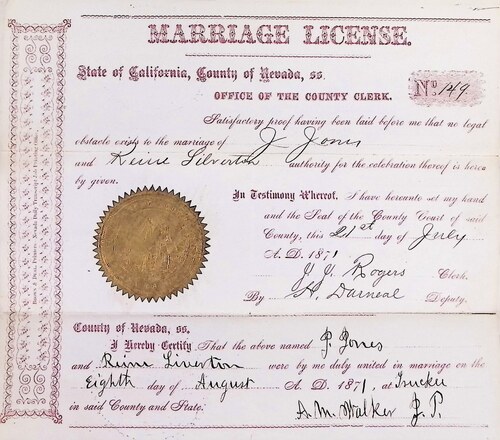 MARRIAGE LICENSE.
State of California, County of Nevada, ss.
OFFICE OF THE COUNTY CLERK.
No. 149
Satisfactory proof having been laid before me that no legal
obstacle exists to the marriage of J Jones
and Reine Silverton authority for the celebration thereof is here
by given.
In Testimony Whereof, I have hereunto set my hand
and the Seal of the County Court of said
County, this 21st day of July
A. D. 1871
Rogers Clerk.
By H. Darneal Deputy.
County of Nevada, ss.
I Hereby Certify That the above named J. Jones
and Reine Liverton were by me duly united in marriage on the
Eighth day of August A. D. 1871, at Truckee
in said County and State.
A. M. Walker J. P.